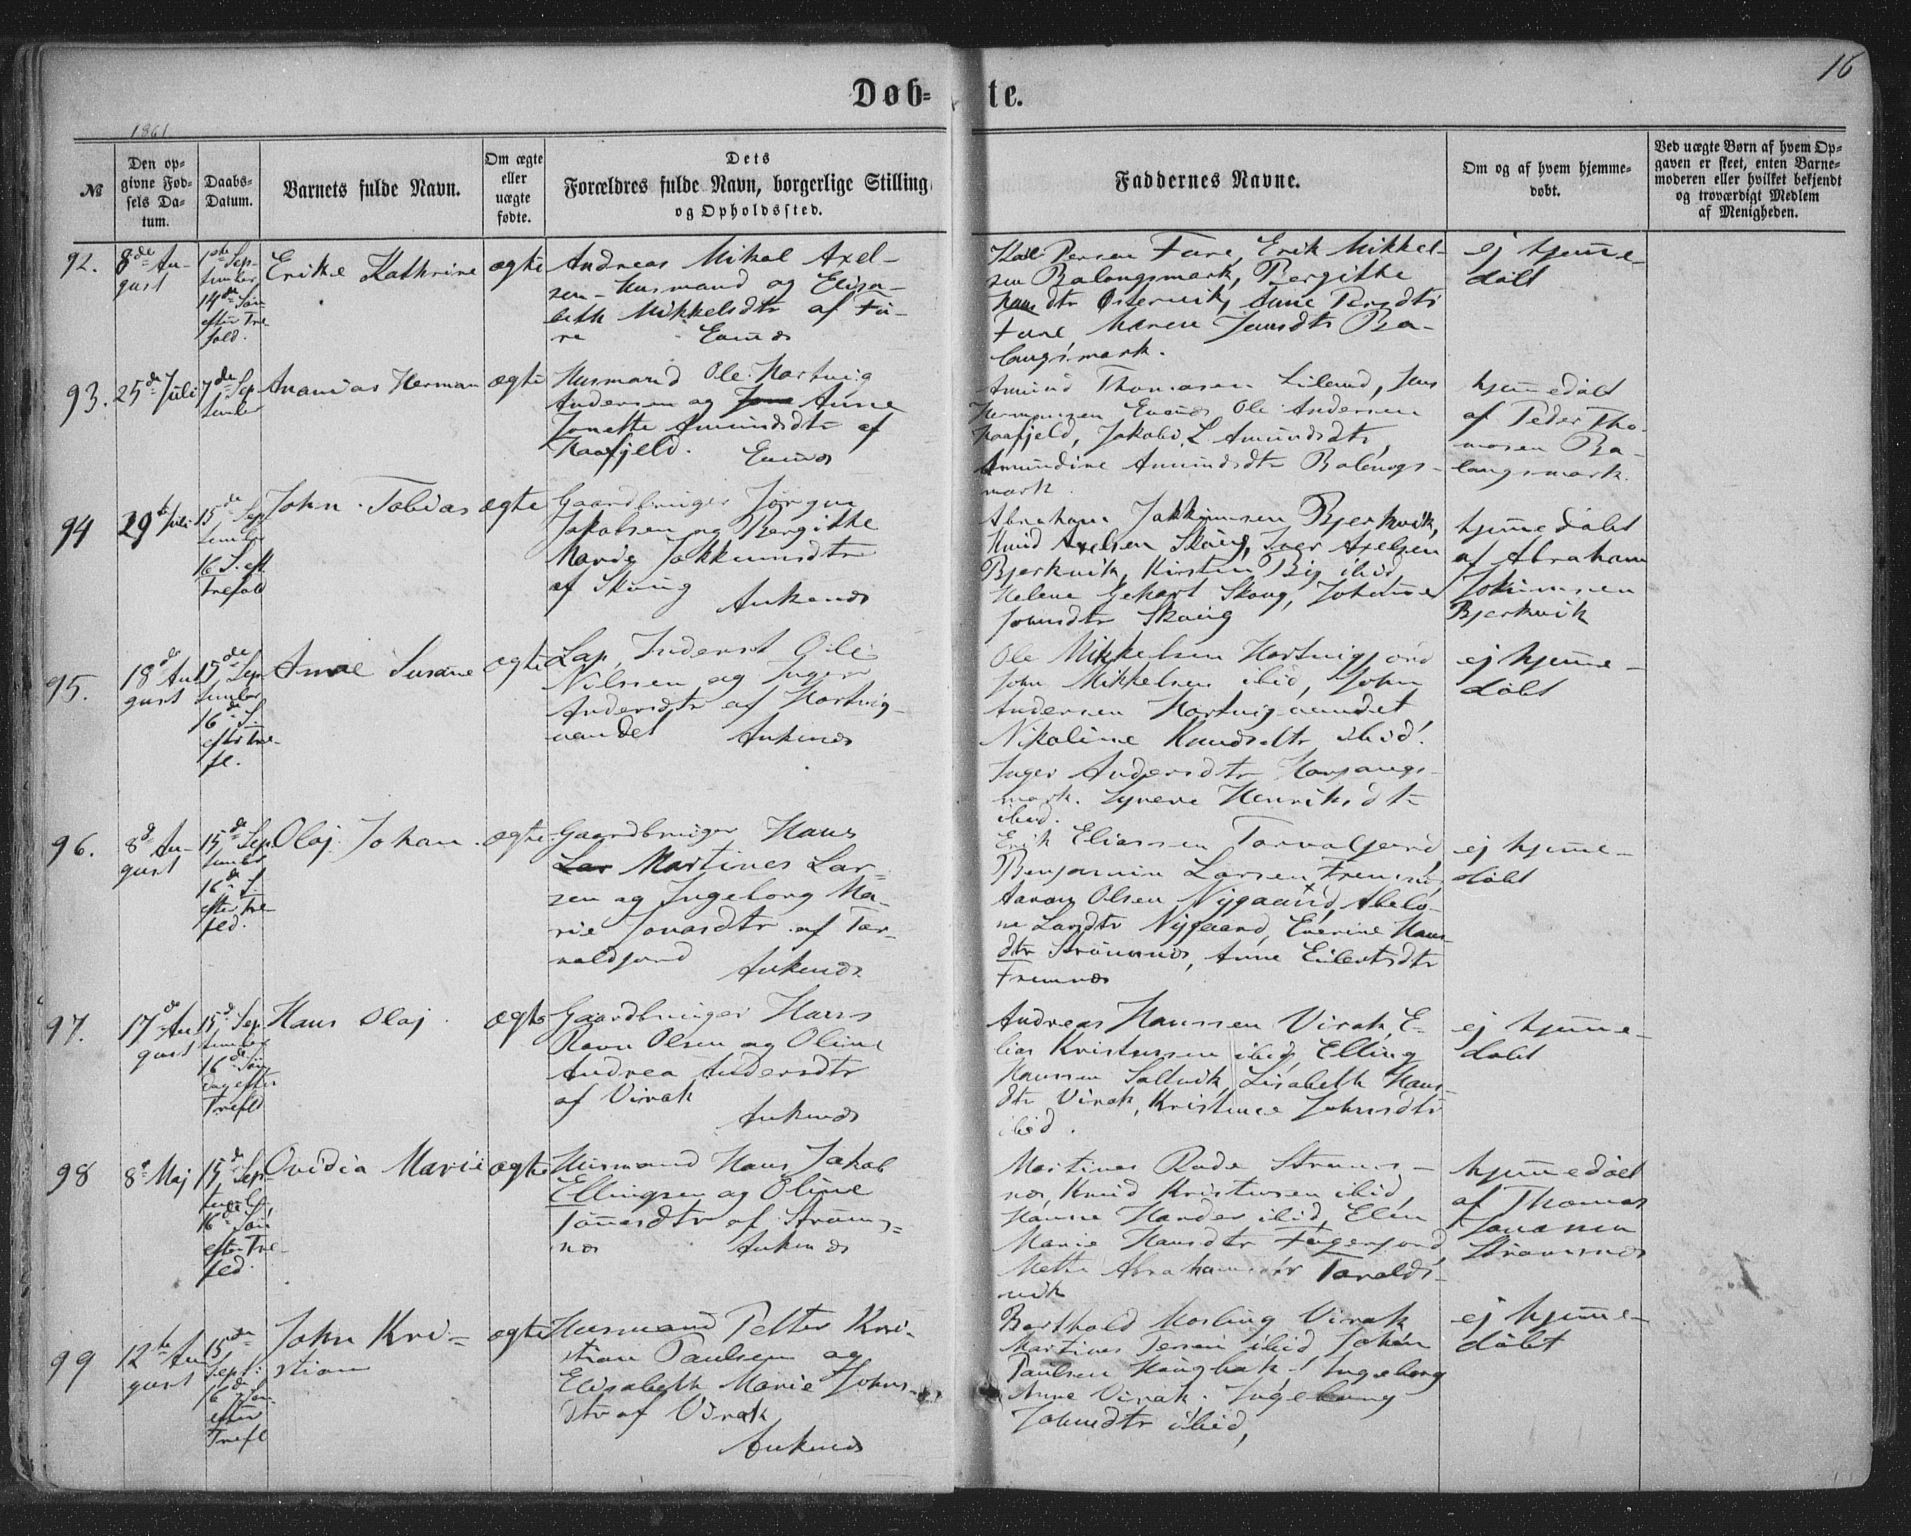 16
Døb-te.
1861
№
Den op-
givne Fød-
sels Da-
tum.
Daabs-
Datum.
Barnets fulde Navn.
Om ægte
eller
uægte
fødte.
Dets
Forældres fulde Navn, borgerlige Stilling
og Opholdssted.
Faddernes Navne.
Om og af hvem hjemme-
døbt.
Ved uægte Børn af hvem Op-
gaven er skeet, enten Barne-
moderen eller hvilket bekjendt
og troværdigt Medlem
af Menigheden.
92.
8de Au-
gust
1ste Sep-
tember
14de Søn
efter Tre-
fold.
Erike Kathrine
ægte
Andreas Mikal Axel-
sen - Husmand og Elisa-
beth Mikkelsdtr af Fu-
re Evenes
Persen Fure, Erik Mikkel-
sen Balangsmark, Bergithe
Hansdtr Østervik, Anne
Fure Maren Jensdtr Ba-
langsmark.
ej hjemme-
døbt
93.
25de Juli
7de Sep
tember
Ananias Herman
ægte
Husmand Ole Hartvig
Andersen og Anne
Jonette Amundsdtr af
Haafjeld. Evenes
Amund Thomasen Liland, Jens
Hermansen Evenes Ole Andersen
Haafjeld, Jakobi. L. Amundsdtr,
Amundine Amundsdtr Balangs-
mark.
hjemmedøbt
af Peder Tho-
masen Ba-
langsmark.
94
29de Juli
15de Sep
tember
16 S. eft
Trefold
John Tobias
ægte
Gaardbruger Jørgen
Jakobsen og Bergithe
Marie Jokkumsdtr
af Skoug Ankenes
Abraham Jokkumsen Bjerkvik,
Knud Axelsen Skoug, Iver Axelsen
Bjerkvik, Kirsten Big ibid
Helene Gehart Skoug, Johanne
Johnsdtr Skoug
hjemmedøbt
af Abraham
Jokumsen
Bjerkvik
95.
18de Au
gust
15de Sep
tember
16de S.
efter Tre-
fl.
Anne Susanne
ægte
Lap, Inderst Ole
Nilsen og Inger
Andersdtr af Hartvig-
vandet Ankenes
Ole Mikkelsen Hartvigjord
John Mikkelsen ibid, John
Andersen Hartvigvandet
Nikoline Knudsdtr ibid.
Inger Andersdtr Herjangs-
mark. Synneve Henriksdtr
ibid.
ej hjemme-
døbt
96.
8de Au-
gust
15de Sep
tember
16de S.
efter Tre-
fold.
Olaj Johan
ægte
Gaardbruger Hans
Lar Martines Lar-
sen og Ingeborg Ma-
rie Jonasdtr af Tar-
valdsjord Ankenes
Erik Eliassen Tarvaljord,
Benjamin Larsen Fremnes,
Aaron Olsen Nygaard, Abelo-
ne Larsdtr Nygaard, Everine Hans-
dtr Strømsnes, Anne Eilertsdtr
Fremnes
ej hjemme-
døbt
97.
17de Au
gust
15de Sep
tember
16de Søn
dag efter
Trefld
Hans Olaj
ægte
Gaardbruger Hans
Ravn Olsen og Oline
Andrea Andersdtr
af Virak
Ankenes
Andreas Hanssen Virak, E-
lias Kristensen ibid, Elling
Hanssen Saltvik, Lisabeth Hans-
dtr Virak, Kristence Johnsdtr
ibid.
ej hjemme-
døbt
98
8de Maj
15de Sep-
tember
16de Søn
efter Tre-
fld.
Ovidia Marie
ægte
Husmand Hans Jakob
Ellingsen og Oline
Tønnesdtr af Strøms-
nes Ankenes
Martines Rude Strøms-
nes, Knud Kristensen ibid,
Hanne Harder ibid, Elen
Marie Hansdtr Fagerjord
Mette Abrahamsdtr Tarald-
vik
hjemmedøbt
af Thomas
Jonassen
Strømsnes
99
12te Au
gust
15de
Sept:
16de Søn-
efter
Trefl
John Kri-
stian
ægte
Husmand Petter Kri-
stian Paulsen og
Elisabeth Marie Johns-
dtr af Virak
Ankenes
Barthold Mosling Virak
Martines Persen ibid Johan
Paulsen Haugbak, Ingeborg
Anne Virak. Ingeborg
Johnsdtr ibid,
ej hjemme-
døbt